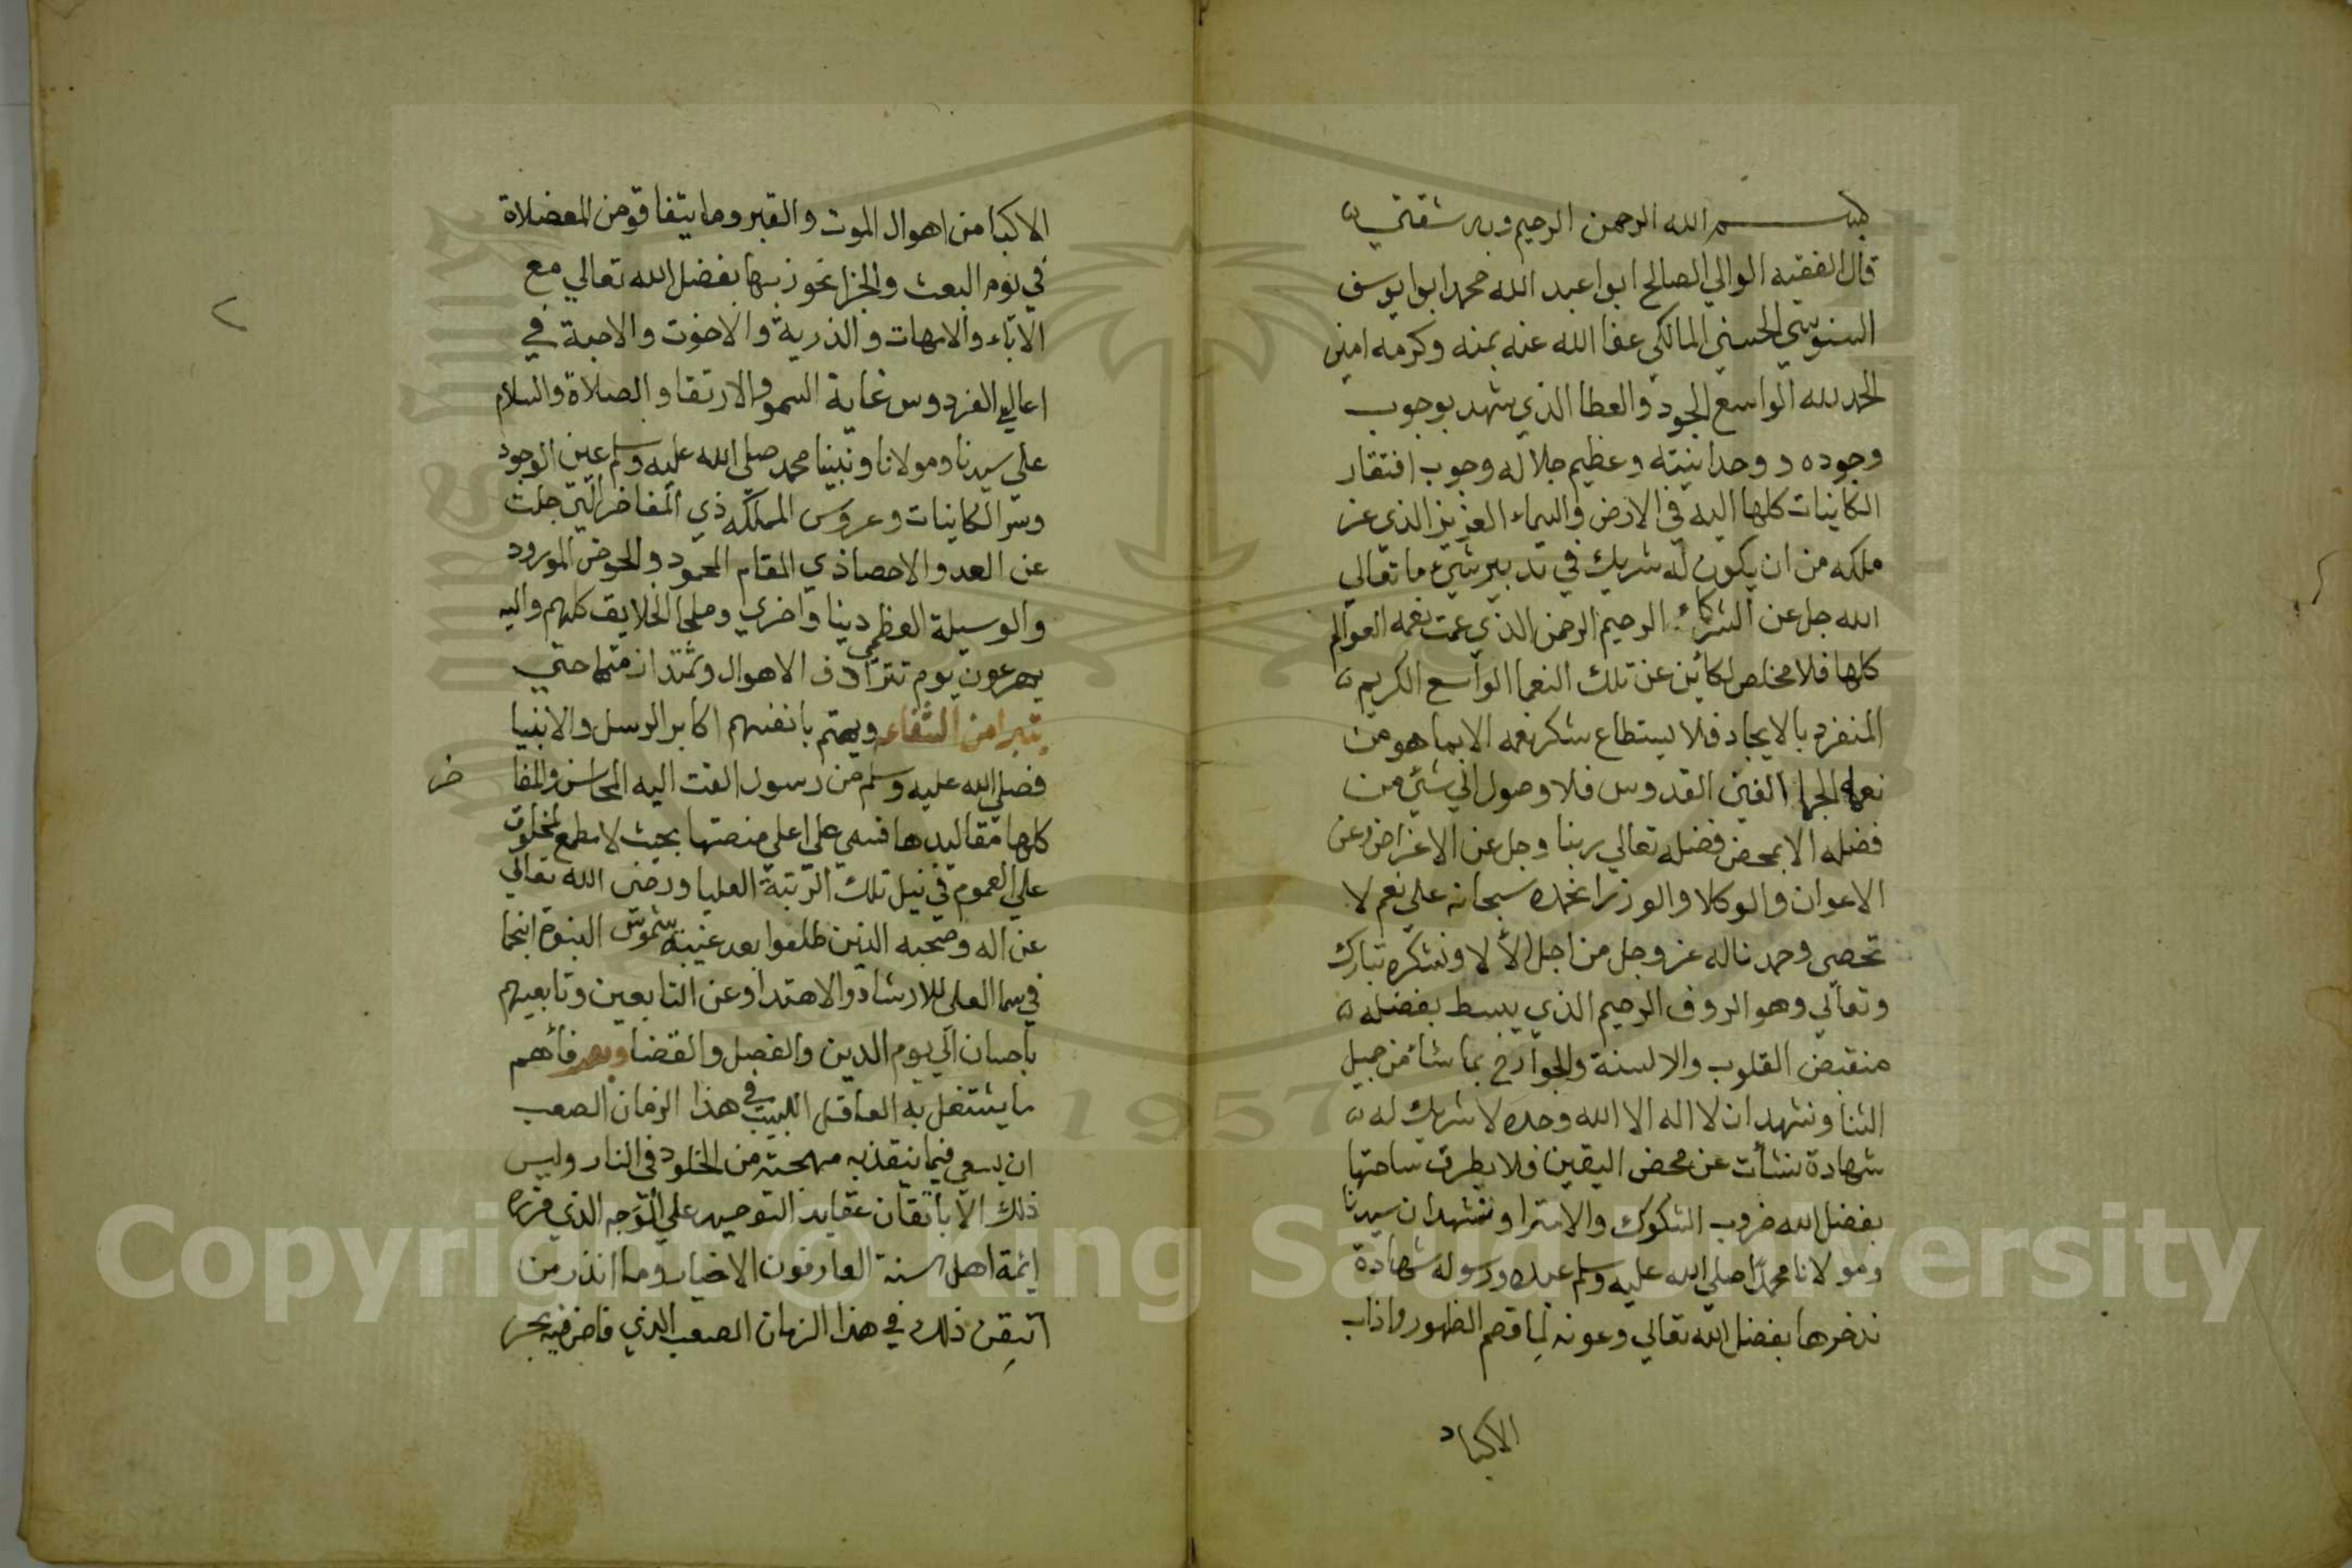 بسم الله الرحمن الرحيم وبه ثقتي
قال الفقيه الوالي الصالح ابوا عبد الله محمد ابوا يوسف
السنوسي الحسني المالكي عفا الله عنه بمنه وكرمه امين
الحمد لله الواسع الجود والعطا الذي شهد بوجوب
وجوده ووحدانيته وعظيم جلاله وجوب افتقار
الكاينات كلها اليه في الارض والسماء العزيز الذي عز
ملكه من ان يكون له شريك في تدبير شيء ما تعالي
الله جل عن الشركاء الرحيم الرحمن الذي عمت نعمه العوالم
كلها فلا مخلص لكائن عن تلك النعما الواسع الكريم
المنفرد بالايجاد فلا يستطاع شكر نعمه الا بما هو من
نعمه الجما الغني القدوس فلا وصول الي شيء من
فضله الا بمحض فضله تعالي ربنا وجل عن الاغراض وعن
الاعوان والوكلا والوزرا نحمده سبحانه علي نعم لا
تحصي وحمدنا له عز وجل من اجل الالا ونشكره تبارك
وتعالي وهو الروف الرحيم الذي يبسط بفضله
منقبض القلوب والالسنة والجوارح بما شاء من جميل
الثنا ونشهد ان لا اله الا الله وحده لا شريك له
شهادة نشأت عن محض اليقين فلا يطرق ساحتها
بفضل الله ضروب الشكوك والامترا ونشهد ان سيدنا
ومولانا محمدا صلي الله عليه وسلم عبده ورسوله شهادة
ندخرها بفضل الله تعالي وعونه لما قصم الظهور واذاب
الاكباد
الاكبا من اهوال الموت والقبر وما يتفاقو من المعضلاة
في يوم البعث والجزا نحوز بها بفضل الله تعالي مع
الاباء والامهات والذرية والاخوت والاحبة في
اعالي الفردوس غاية السمو والارتقا والصلاة والسلام
علي سيدنا ومولانا ونبينا محمد صلي الله عليه وسلم عين الوجود
وسر الكاينات وعروس المملكه ذي المفاخر التي جلت
عن العد والاحصا ذي المقام المحمود والحوض المورود
والوسيلة العظمي دنيا واخري وملجا الخلايق كلهم واليه
يهرعون يوم تترادف الاهوال وتمتد ازمتها حتي
يتبرا من الشفاعه ويهتم بانفسهم اكابر الرسل والانبيا
فصلي الله عليه وسلم من رسول القت اليه المحاسن والمفا خر
كلها مقاليدها فسمي علي اعلي منصتها بحيث لا مطمع لمخلوق
علي العموم في نيل تلك الرتبة العليا ورضي الله تعالي
عن اله وصحبه الذين طلعوا بعد غيبة شموس النبوة انجما
في سما العلي للارشاد والاهتدا وعن التابعين وتابعيهم
باحسان الي يوم الدين والفصل والقضا وبعد فأهم
ما يشتغل به العاقل اللبيب في هذا الزمان الصعب
ان يسعي فيما ينقذ به مهجته من الخلود في النار وليس
ذلك الا باتقان عقايد التوحيد علي الوجه الذي قرره
ايمة اهل السنة العارفون الاخيار وما اندر من
اتيقن ذلك في هذا الزمان الصعب الذي فاض فيه بحر
٢